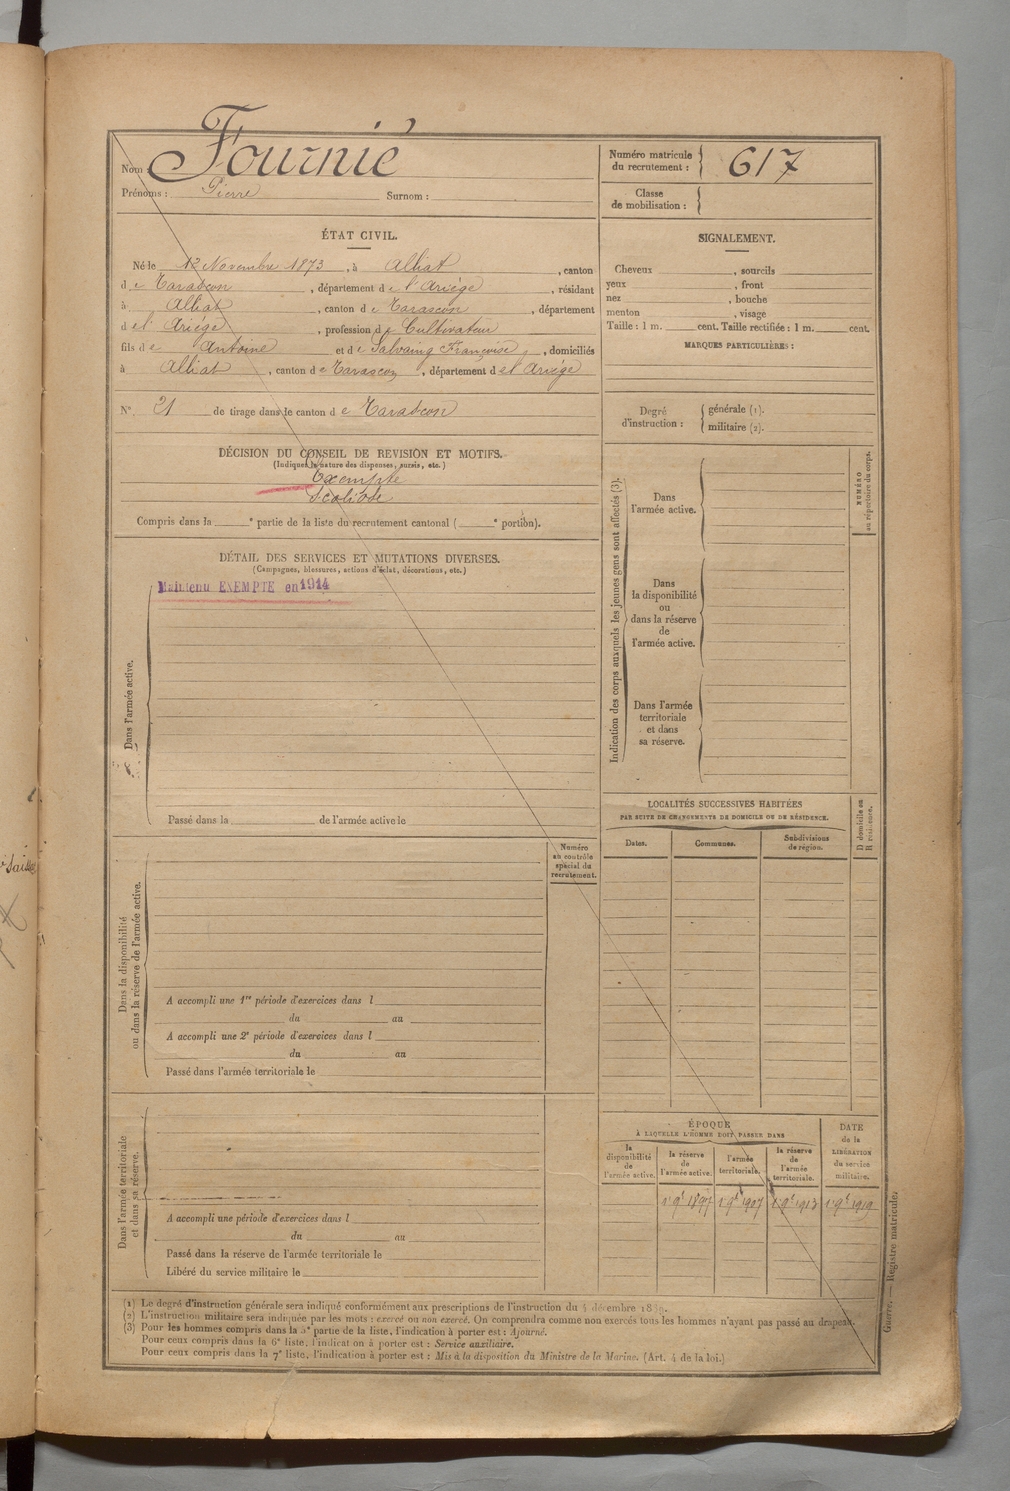 Nom : Fournié
Prénoms : Pierre Surnom :
Numéro matricule du recrutement : 617
Classe de mobilisation :
ÉTAT CIVIL.
Né le 12 Novembre 1873, à Alliat, canton
de Tarascon, département de l'Ariège, résidant
à Alliat, canton de Tarascon, département
del' Ariége, profession de Cultivateur
fils de Antoine et de Salvaing Françoise, domiciliés
à Alliat, canton de Tarascon, département del' Ariége
N° 21 de tirage dans le canton de Tarascon
DÉCISION DU CONSEIL DE REVISION ET MOTIFS.
(Indiquer la nature des dispenses, sursis, etc.)
Exempté
Scoliose
Compris dans la e partie de la liste du recrutement cantonal ( e portion).
DÉTAIL DES SERVICES ET MUTATIONS DIVERSES.
(Campagnes, blessures, actions d'éclat, décorations, etc.)
Maintenu EXEMPTE en 1914
Dans l'armée active.
Passé dans la de l'armée active le
Numéro
au contrôle
spécial du
recrutement.
Dans la disponibilité
ou dans la réserve de l'armée active.
A accompli une 1re période d'exercices dans l
du au
A accompli une 2e période d'exercices dans l
du au
Passé dans l'armée territoriale le
Dans l'armée territoriale
et dans sa réserve.
A accompli une période d'exercices dans l
du au
Passé dans la réserve de l'armée territoriale le
Libéré du service militaire le
SIGNALEMENT.
Cheveux , sourcils
yeux , front
nez , bouche
menton , visage
Taille : 1 m. cent. Taille rectifiée : 1 m. cent.
MARQUES PARTICULIÈRES :
Degré d'instruction : générale (1).
militaire (2).
Indication des corps auxquels les jeunes gens sont affectés (3).
NUMÉRO
au répertoire du corps.
Dans
l'armée active.
Dans
la disponibilité
ou
dans la réserve
de
l'armée active.
Dans l'armée
territoriale
et dans
sa réserve.
LOCALITÉS SUCCESSIVES HABITÉES
PAR SUITE DE CHANGEMENTS DE DOMICILE OU DE RÉSIDENCE.
D domicile ou
R résidence.
Dates. Communes. Subdivisions de région.
ÉPOQUE
À LAQUELLE L'HOMME DOIT PASSER DANS
la disponibilité de l'armée active.
la réserve de l'armée active.
l'armée territoriale.
la réserve de l'armée territoriale.
DATE de la LIBÉRATION du service militaire.
1 9e 1897 1 9e 1907 1 9e 1913 1 9e 1919
(1) Le degré d'instruction générale sera indiqué conformément aux prescriptions de l'instruction du 4 décembre 1889.
(2) L'instruction militaire sera indiquée par les mots : exercé ou non exercé. On comprendra comme non exercés tous les hommes n'ayant pas passé au drapeau.
(3) Pour les hommes compris dans la 5e partie de la liste, l'indication à porter est : Ajourné.
Pour ceux compris dans la 6e liste, l'indication à porter est : Service auxiliaire.
Pour ceux compris dans la 7e liste, l'indication à porter est : Mis à la disposition du Ministre de la Marine. (Art. 4 de la loi.)
Guerre. — Registre matricule.